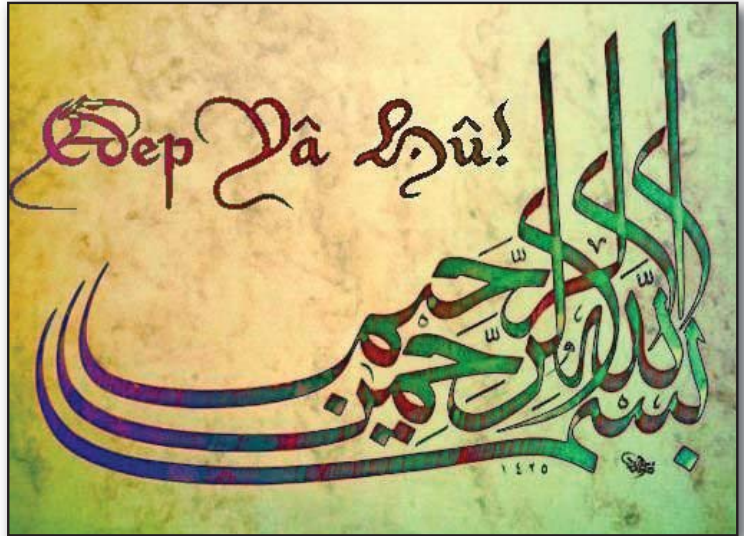 Edep Yâ Hû!
بسم الله الرحمن الرحيم
١٤٢٥